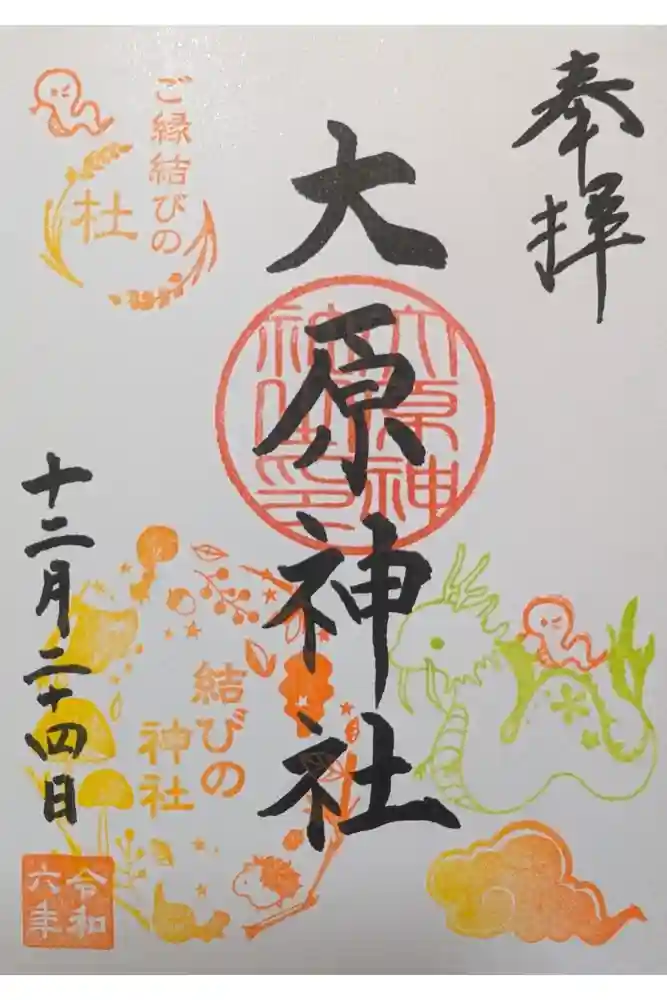 奉拝
大原神社
大原神社御印
ご縁結びの
杜
結びの
神社
十二月二十四日
令和
六年